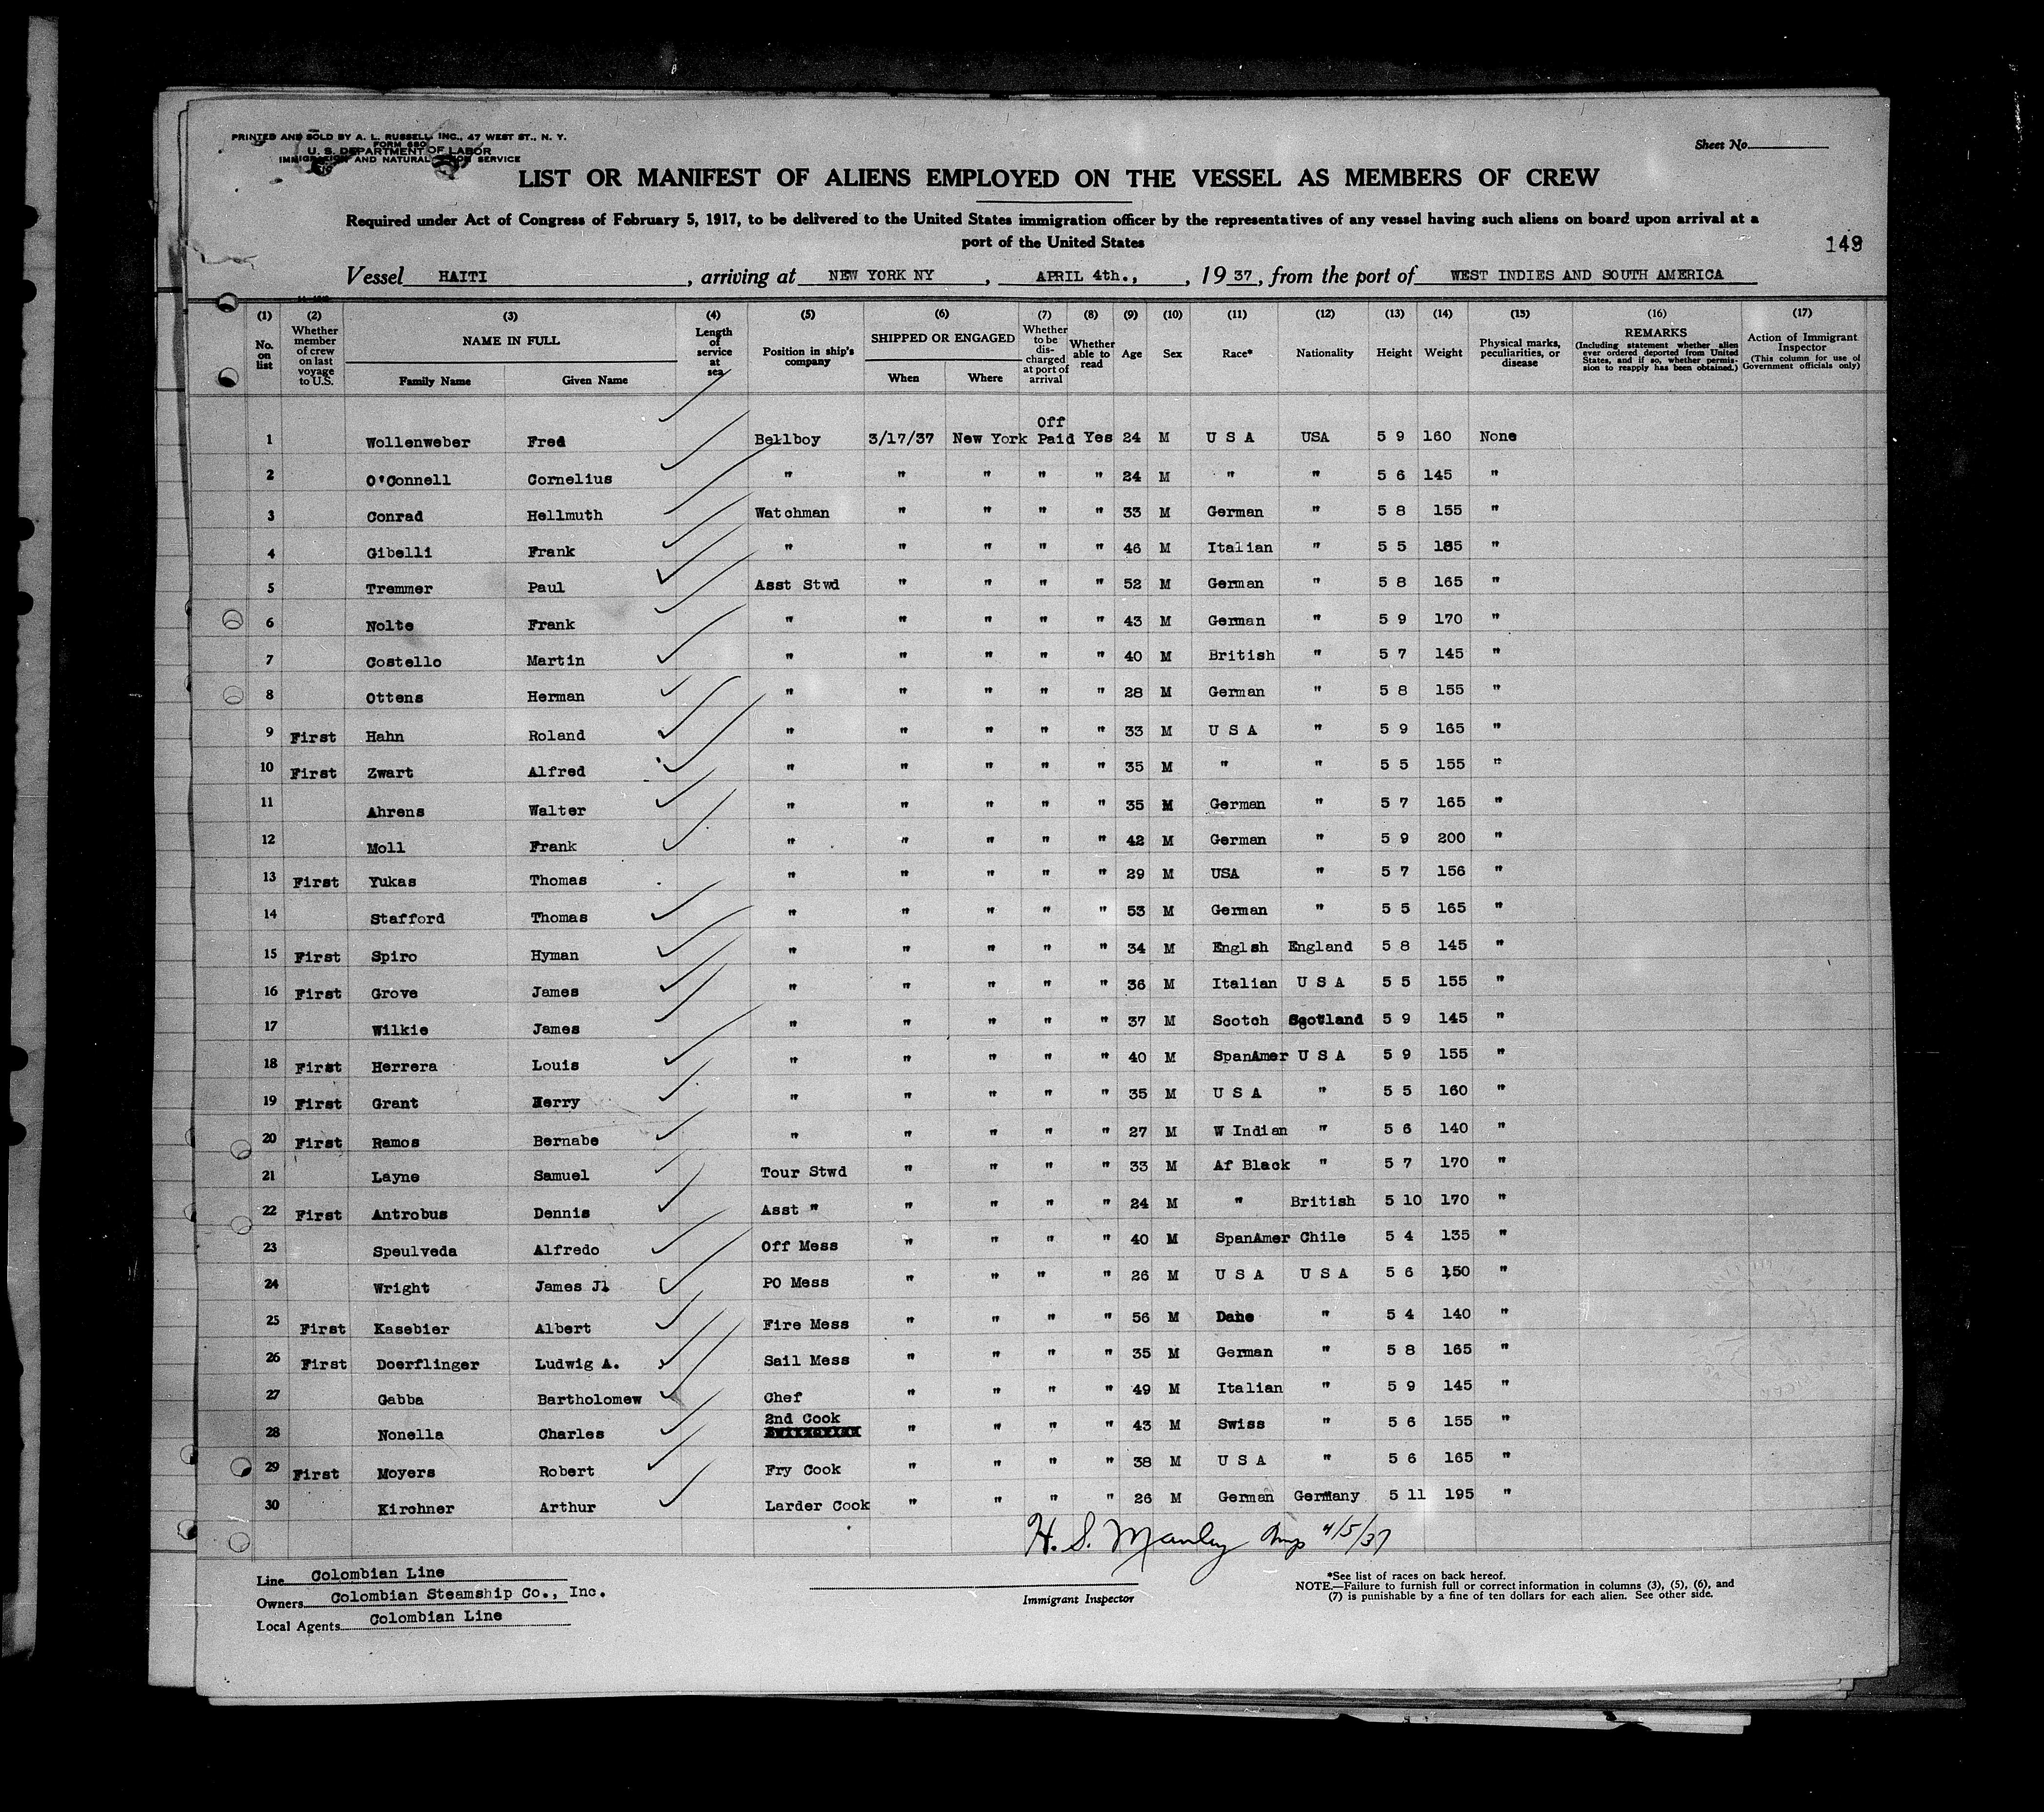 PRINTED AND SOLD BY A. L. RUSSELL, INC., 47 WEST ST., N. Y.
FORM 680
U. S. DEPARTMENT OF LABOR
IMMIGRATION AND NATURALIZATION SERVICE
Sheet No.
LIST OR MANIFEST OF ALIENS EMPLOYED ON THE VESSEL AS MEMBERS OF CREW
Required under Act of Congress of February 5, 1917, to be delivered to the United States immigration officer by the representatives of any vessel having such aliens on board upon arrival at a
port of the United States
149
Vessel HAITI, arriving at NEW YORK NY, APRIL 4th., , 19 37, from the port of WEST INDIES AND SOUTH AMERICA
(1) No. on list (2) Whether member of crew on last voyage to U.S. (3) NAME IN FULL Family Name Given Name (4) Length of service at sea (5) Position in ship's company (6) SHIPPED OR ENGAGED When Where (7) Whether to be discharged at port of arrival (8) Whether able to read (9) Age (10) Sex (11) Race* (12) Nationality (13) Height (14) Weight (15) Physical marks, peculiarities, or disease (16) REMARKS (Including statement whether alien ever ordered deported from United States, and if so, whether permission to reapply has been obtained.) (17) Action of Immigrant Inspector (This column for use of Government officials only)
1 Wollenweber Fred Bellboy 3/17/37 New York Off Paid Yes 24 M U S A USA 5 9 160 None
2 O'Connell Cornelius " " " " " 24 M " " 5 6 145 "
3 Conrad Hellmuth Watchman " " " " 33 M German " 5 8 155 "
4 Gibelli Frank " " " " " 46 M Italian " 5 5 185 "
5 Tremmer Paul Asst Stwd " " " " 52 M German " 5 8 165 "
6 Nolte Frank " " " " " 43 M German " 5 9 170 "
7 Costello Martin " " " " " 40 M British " 5 7 145 "
8 Ottens Herman " " " " " 28 M German " 5 8 155 "
9 First Hahn Roland " " " " " 33 M U S A " 5 9 165 "
10 First Zwart Alfred " " " " " 35 M " " 5 5 155 "
11 Ahrens Walter " " " " " 35 M German " 5 7 165 "
12 Moll Frank " " " " " 42 M German " 5 9 200 "
13 First Yukas Thomas " " " " " 29 M USA " 5 7 156 "
14 Stafford Thomas " " " " " 53 M German " 5 5 165 "
15 First Spiro Hyman " " " " " 34 M Englsh England 5 8 145 "
16 First Grove James " " " " " 36 M Italian U S A 5 5 155 "
17 Wilkie James " " " " " 37 M Scotch Scotland 5 9 145 "
18 First Herrera Louis " " " " " 40 M SpanAmer U S A 5 9 155 "
19 First Grant Herry " " " " " 35 M U S A " 5 5 160 "
20 First Ramos Bernabe " " " " " 27 M W Indian " 5 6 140 "
21 Layne Samuel Tour Stwd " " " " 33 M Af Black " 5 7 170 "
22 First Antrobus Dennis Asst " " " " " 24 M " British 5 10 170 "
23 Speulveda Alfredo Off Mess " " " " 40 M SpanAmer Chile 5 4 135 "
24 Wright James Jl PO Mess " " " " 26 M U S A U S A 5 6 150 "
25 First Kasebier Albert Fire Mess " " " " 56 M Dane " 5 4 140 "
26 First Doerflinger Ludwig A. Sail Mess " " " " 35 M German " 5 8 165 "
27 Gabba Bartholomew Chef " " " " 49 M Italian " 5 9 145 "
28 Nonella Charles 2nd Cook " " " " 43 M Swiss " 5 6 155 "
29 First Moyers Robert Fry Cook " " " " 38 M U S A " 5 6 165 "
30 Kirchner Arthur Larder Cook " " " " 26 M German Germany 5 11 195 "
H. S. Manley Insp 4/5/37
Line Colombian Line
Owners Colombian Steamship Co., Inc.
Local Agents Colombian Line
Immigrant Inspector
*See list of races on back hereof.
NOTE.—Failure to furnish full or correct information in columns (3), (5), (6), and
(7) is punishable by a fine of ten dollars for each alien. See other side.